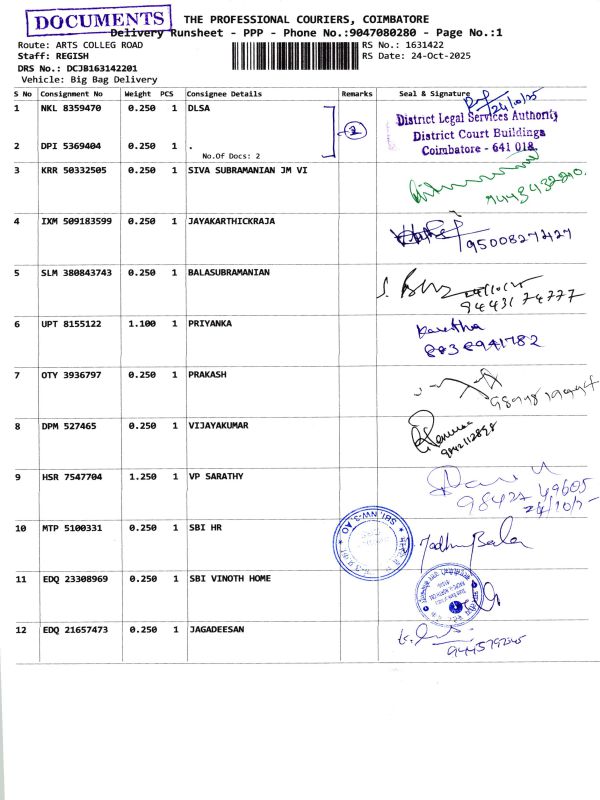 DOCUMENTS
THE PROFESSIONAL COURIERS, COIMBATORE
Delivery Runsheet - PPP - Phone No.:9047080280 - Page No.:1
Route: ARTS COLLEG ROAD
RS No.: 1631422
Staff: REGISH
RS Date: 24-Oct-2025
DRS No.: DCJB163142201
Vehicle: Big Bag Delivery
S No Consignment No Weight PCS Consignee Details Remarks Seal & Signature
24/10/25
1 NKL 8359470 0.250 1 DLSA
District Legal Services Authority
District Court Buildings
2 DPI 5369404 0.250 1 .
Coimbatore - 641 018.
No.Of Docs: 2
3 KRR 50332505 0.250 1 SIVA SUBRAMANIAN JM VI
9443432840.
4 IXM 509183599 0.250 1 JAYAKARTHICKRAJA
9500827427
5 SLM 380843743 0.250 1 BALASUBRAMANIAN
24/10/25
9443174777
6 UPT 8155122 1.100 1 PRIYANKA
Kavitha
8838941782
7 OTY 3936797 0.250 1 PRAKASH
8 DPM 527465 0.250 1 VIJAYAKUMAR
9842112898
9 HSR 7547704 1.250 1 VP SARATHY
98427 49605
24/10/25
10 MTP 5100331 0.250 1 SBI HR
SBI, NW-3, AO
Madhu Bala
11 EDQ 23308969 0.250 1 SBI VINOTH HOME
12 EDQ 21657473 0.250 1 JAGADEESAN